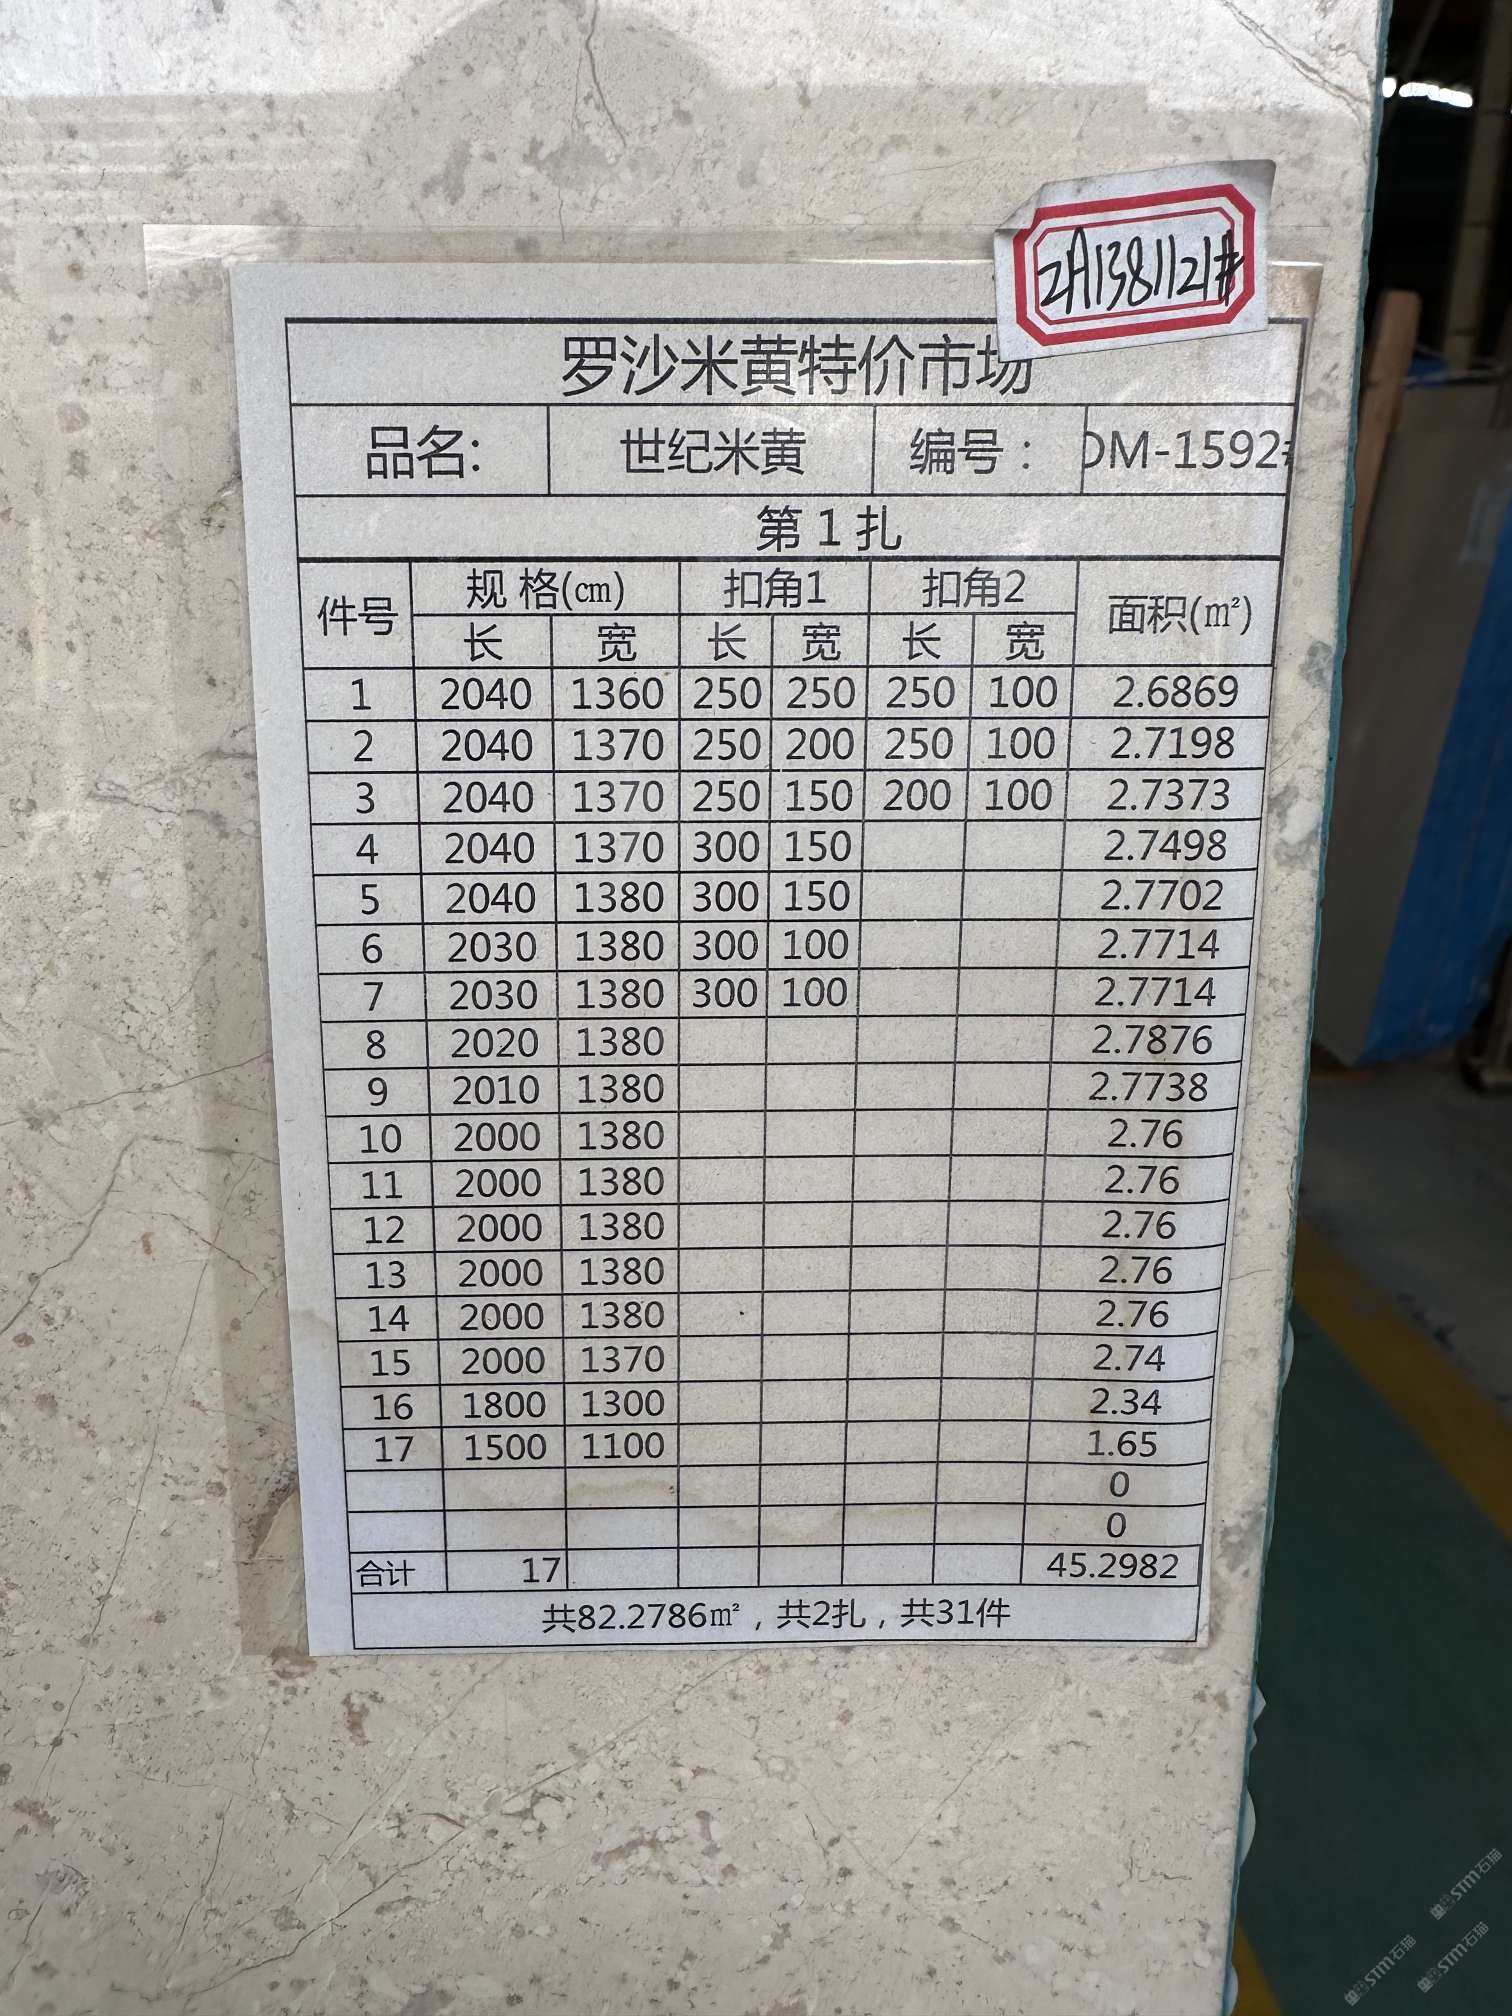 2A1381121#
罗沙米黄特价市场
品名: 世纪米黄 编号： DM-1592#
第 1 扎
件号 规 格(cm) 扣角1 扣角2 面积(㎡)
长 宽 长 宽 长 宽
1 2040 1360 250 250 250 100 2.6869
2 2040 1370 250 200 250 100 2.7198
3 2040 1370 250 150 200 100 2.7373
4 2040 1370 300 150 2.7498
5 2040 1380 300 150 2.7702
6 2030 1380 300 100 2.7714
7 2030 1380 300 100 2.7714
8 2020 1380 2.7876
9 2010 1380 2.7738
10 2000 1380 2.76
11 2000 1380 2.76
12 2000 1380 2.76
13 2000 1380 2.76
14 2000 1380 2.76
15 2000 1370 2.74
16 1800 1300 2.34
17 1500 1100 1.65
0
0
合计 17 45.2982
共82.2786㎡，共2扎，共31件
STM石猫
STM石猫
STM石猫